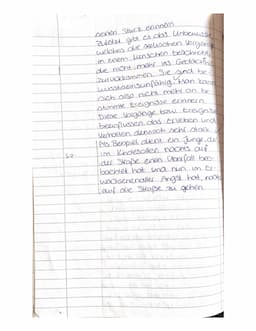 nehen Stück erinnern
Zuletzt gibt es das Unbewusste
welches die seelischen Vorgänge
in einem Menschen beschreibt,
die nicht mehr ins Gedächtnis
zurückkommen. Sie sind be-
wusstseinsunfähig. Man kann
sich also nicht mehr an be-
stimmte Ereignisse erinnern.
Diese Vorgänge bzw. Ereignisse
beeinflussen das Erleben und
Verhalten dennoch sehr stark
Als Beispiel dient ein Junge, der
im Kindesalter nachts auf
der Straße einen Überfall beo-
bachtet hat und nun im Er-
wachsenenalter Angst hat, nachts
auf die Straße zu gehen